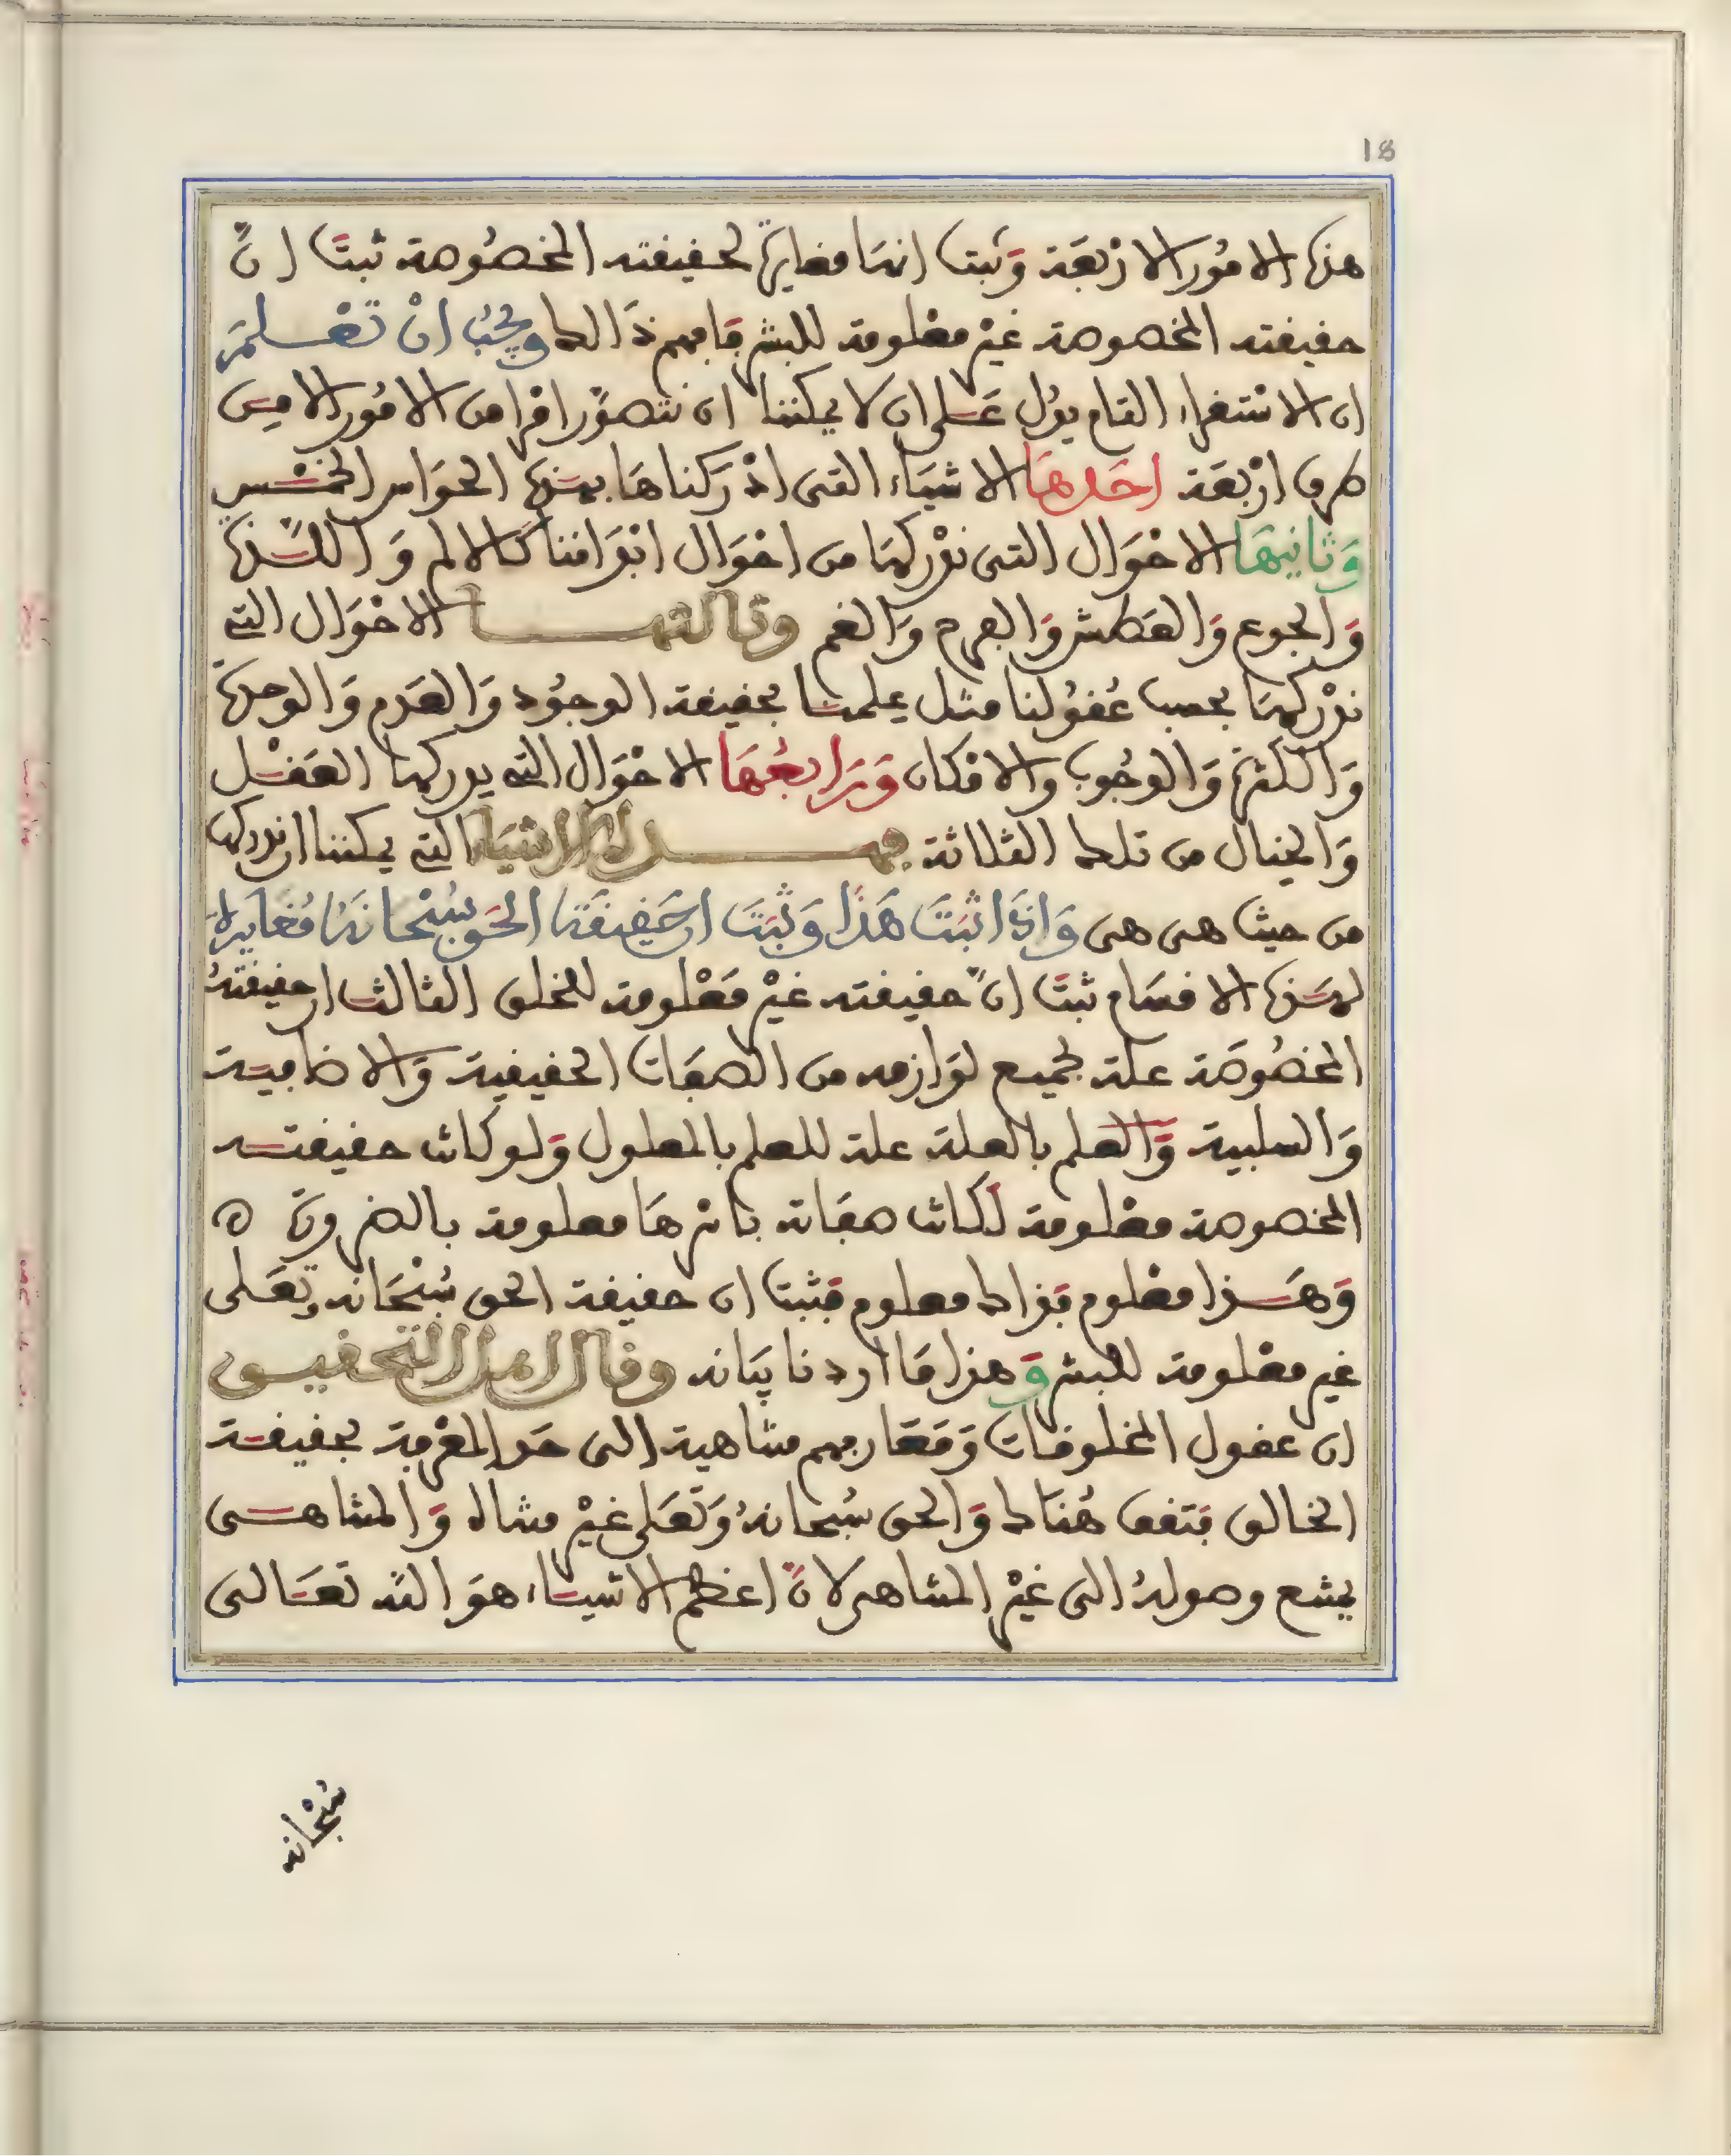 18
هذه الامُور الارْبَعَة وَثبت انها مغايرة لحقيقته المخصُوصة ثبتَ انَّ
حقيقته المخصوصة غيْر معْلومة للبشر فافهم ذَالك ويجبُ انْ تَعْلمَ
ان الاسْتقراء التام يدُل عَلى ان لا يمكننا ان نتصوَّر امْرا من الامُور الا مِن
طرق ارْبعَة احَدهَا الاشيَاء التى ادْرَكناهَا بهَذه الحوَاس الخمْس
وَثانيهَا الاحْوَال التى ندْركهَا من احْوَال ابْدَاننا كالالم وَاللَّذة
وَالجوع وَالعَطش وَالفرح وَالغم وثالثها الاحْوَال التى
ندْركهَا بحسب عُقوُلنا مثل علمنا بحقيقة الوجُود وَالعَدم وَالوحدة
وَالكثرة وَالوجُوب والامْكان وَرَابعُهَا الاحْوَال التى يدركها العَقْل
وَالخيال من تلك الثلاثة فهذه الاشيَاء التى يمكننا ان ندركها
من حيث هى هى وَاذَا ثبَتَ هَذَا وَثبَتَ ان حَقيقَة الحَق سُبْحَانهُ مُغَايرة
لهَذه الاقسَام ثبتَ انَّ حقيقته غيْر مَعْلومة للخلق الثالث ان حقيقتهُ
المخصُوصَة علة لجميع لوَازمه من الصفَات الحقيقية وَالاضافية
وَالسلبية وَالعلم بالعلة علة للعلم بالمعلول وَلو كانت حقيقته
المخصوصة معْلومة لَكانت صفَاته باسْرهَا معلومة بالضرورَة ه
وَهَذا معْلوم فذاك معلوم فثبت ان حقيقة الحق سُبْحَانه وتعَلى
غير معْلومة للبشر وَهذا مَا اردنا بيَانه وقال اهل التحقيق
ان عقول المخلوقات وَمَعَارفهم متناهية الى حَد المعْرفة بحقيقة
الخالق فتقف هُنَاك وَالحق سُبحانهُ وَتعَلى غيْر متناه وَالمتناهى
يمتنع وصولهُ الى غيْر المتناهى لانَّ اعْظم الاشيَاء هوَ اللَّه تعَالى
سُبْحَانه